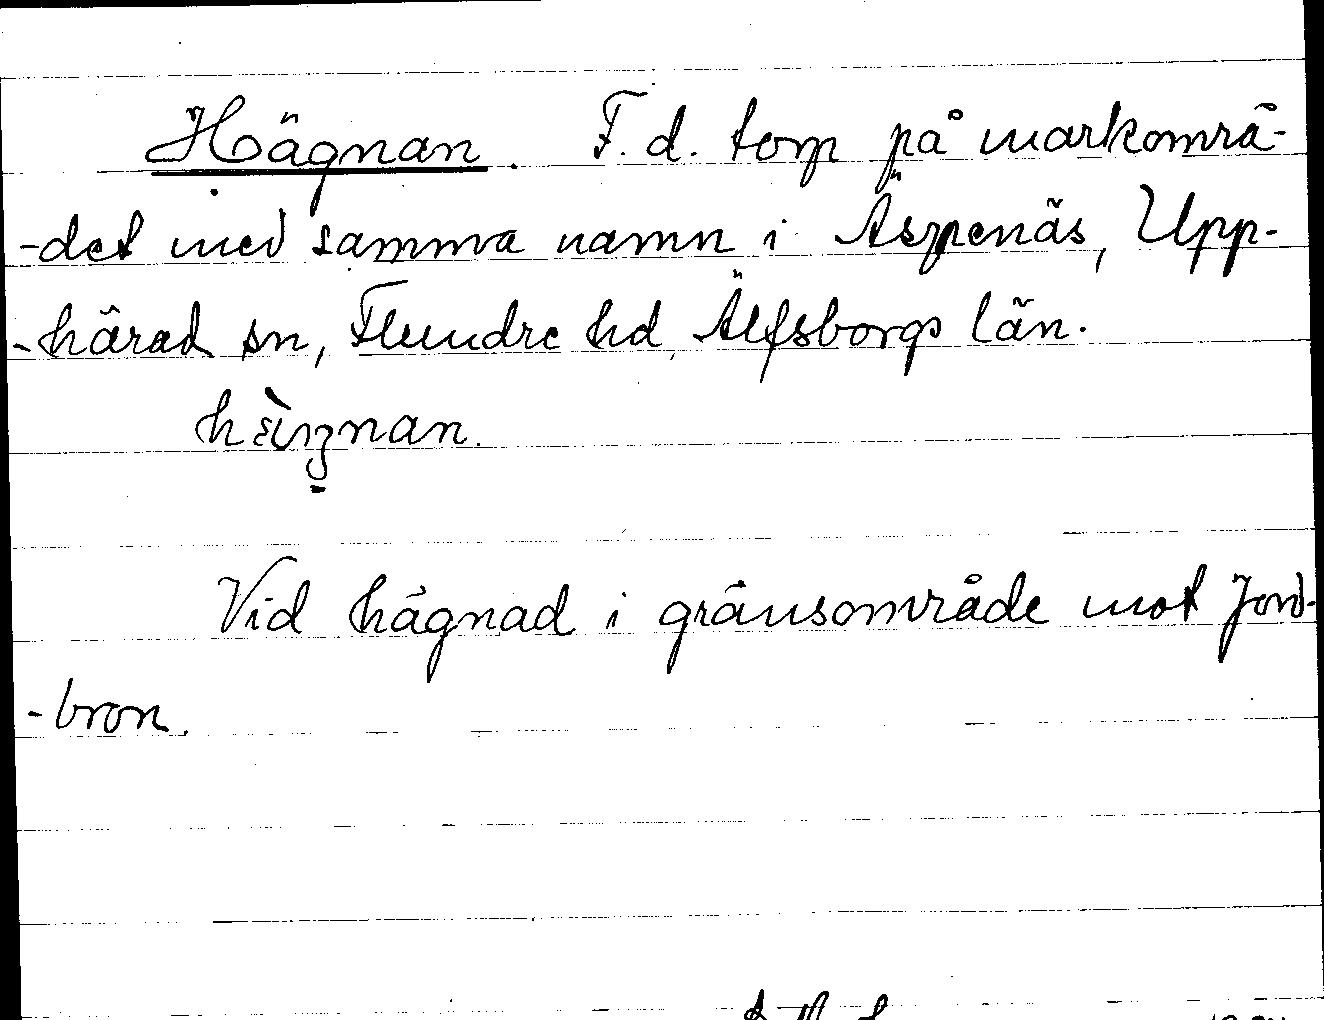 Hägnan. F. d. torp på markområ-
-det med samma namn i Äspenäs, Upp-
-härad sn, Flundre hd, Älfsborgs län.
Vid hägnad i gränsområde mot Jord-
-bron.